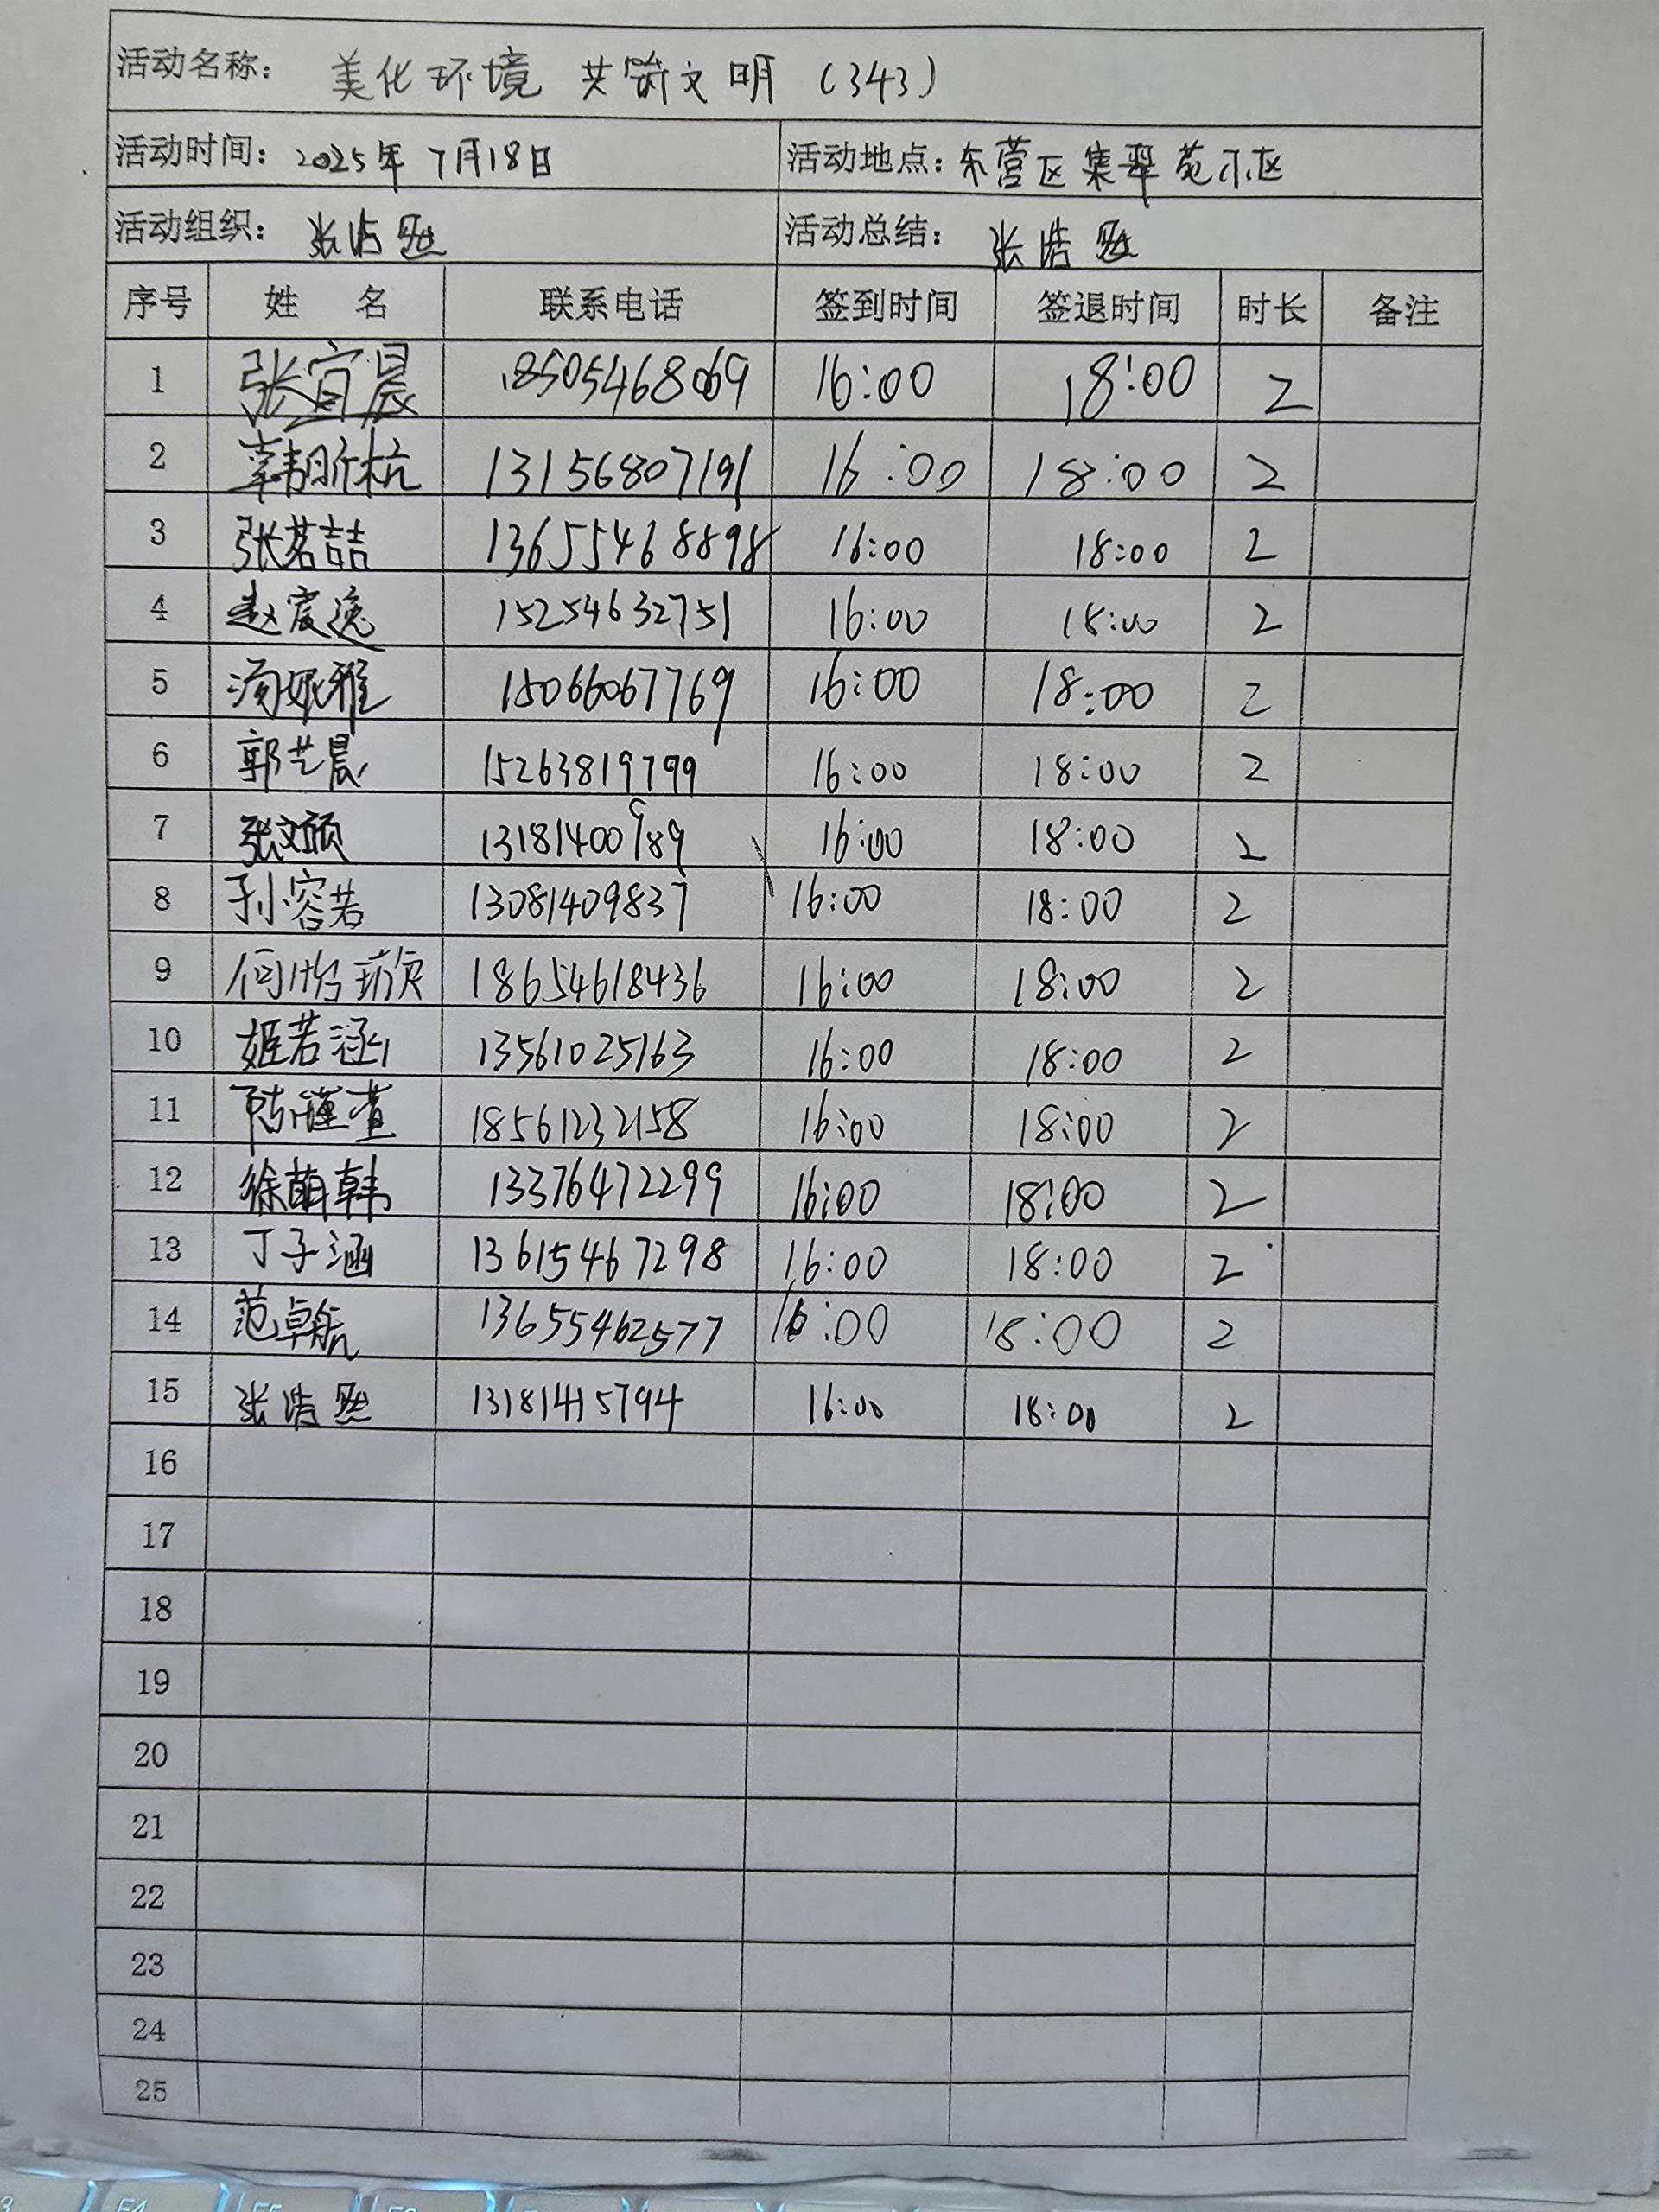 活动名称： 美化环境 共筑文明（343）
活动时间：2025年7月18日 活动地点：东营区集翠苑小区
活动组织：张浩然 活动总结：张浩然
序号 姓 名 联系电话 签到时间 签退时间 时长 备注
1 张宜晨 18505468069 16:00 18:00 2
2 13156807191 16:00 18:00 2
3 张茗喆 13655468898 16:00 18:00 2
4 赵宸逸 15254632751 16:00 18:00 2
5 汤妮雅 15066067769 16:00 18:00 2
6 郭艺晨 15263819799 16:00 18:00 2
7 张文硕 13181400989 16:00 18:00 2
8 孙容若 13081409837 16:00 18:00 2
9 18654618436 16:00 18:00 2
10 姬若涵 13561025163 16:00 18:00 2
11 陈瑾萱 18561232158 16:00 18:00 2
12 徐萌韩 13376472299 16:00 18:00 2
13 丁子涵 13615467298 16:00 18:00 2
14 范卓航 13655462577 16:00 18:00 2
15 张浩然 13181415794 16:00 18:00 2
16
17
18
19
20
21
22
23
24
25